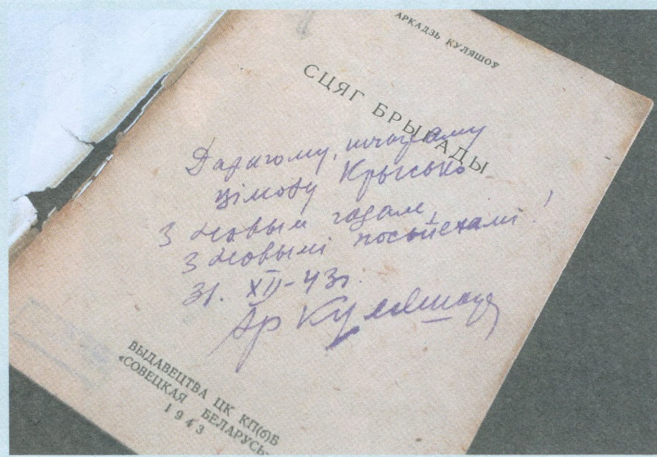 АРКАДЗЬ КУЛЯШОЎ
СЦЯГ БРЫГАДЫ
Дарагому,
Цімоху Крысько
З новым годам,
З новымі поспехамі!
31. XII-43г.
Ар Куляшоў
ВЫДАВЕЦТВА ЦК КП(б)Б
«СОВЕЦКАЯ БЕЛАРУСЬ»
1943